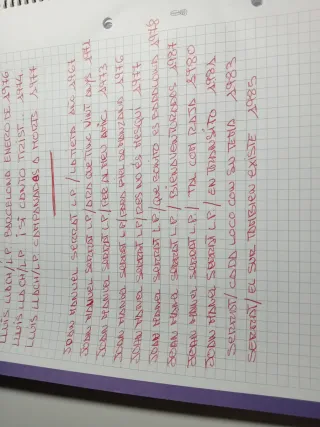 LLUIS LLACH / L.P. BARCELONA ENERO DE 1976
LLUIS LLACH / L.P. I SI CANTO TRIST... 1974
LLUIS LLACH / L.P. CAMPANADES A MORTS 1977
JOAN MANUEL SERRAT L.P. / LA TETA AÑO 1967
JOAN MANUEL SERRAT L.P. / ARA QUE TINC VINT ANYS 1972
JOAN MANUEL SERRAT L.P. / PER AL MEU AMIC 1973
JOAN MANUEL SERRAT L.P. / PARA PIEL DE MANZANA 1976
JOAN MANUEL SERRAT L.P. / RES NO ÉS MESQUÍ 1977
JOAN MANUEL SERRAT L.P. / QUE BONITO ES BADALONA 1978
JOAN MANUEL SERRAT L.P. / BIENAVENTURADOS 1987
JOAN MANUEL SERRAT L.P. / TAL COM RAJA 1980
JOAN MANUEL SERRAT L.P. / EN TRÁNSITO 1981
SERRAT / CADA LOCO CON SU TEMA 1983
SERRAT / EL SUR TAMBIEN EXISTE 1985